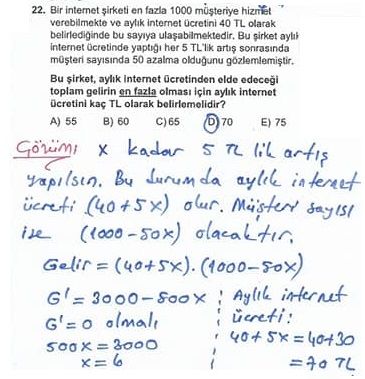 22. Bir internet şirketi en fazla 1000 müşteriye hizmet
verebilmekte ve aylık internet ücretini 40 TL olarak
belirlediğinde bu sayıya ulaşabilmektedir. Bu şirket aylık
internet ücretinde yaptığı her 5 TL'lik artış sonrasında
müşteri sayısında 50 azalma olduğunu gözlemlemiştir.
Bu şirket, aylık internet ücretinden elde edeceği
toplam gelirin en fazla olması için aylık internet
ücretini kaç TL olarak belirlemelidir?
A) 55 B) 60 C) 65 D) 70 E) 75
Çözümı x kadar 5 TL lik artış
yapılsın. Bu durumda aylık internet
ücreti (40+5x) olur. Müşteri sayısı
ise (1000-50x) olacaktır.
Gelir = (40+5x).(1000-50x)
G' = 3000-500x
G'=0 olmalı
500x = 3000
x = 6
Aylık internet
ücreti:
40+5x = 40+30
= 70 TL